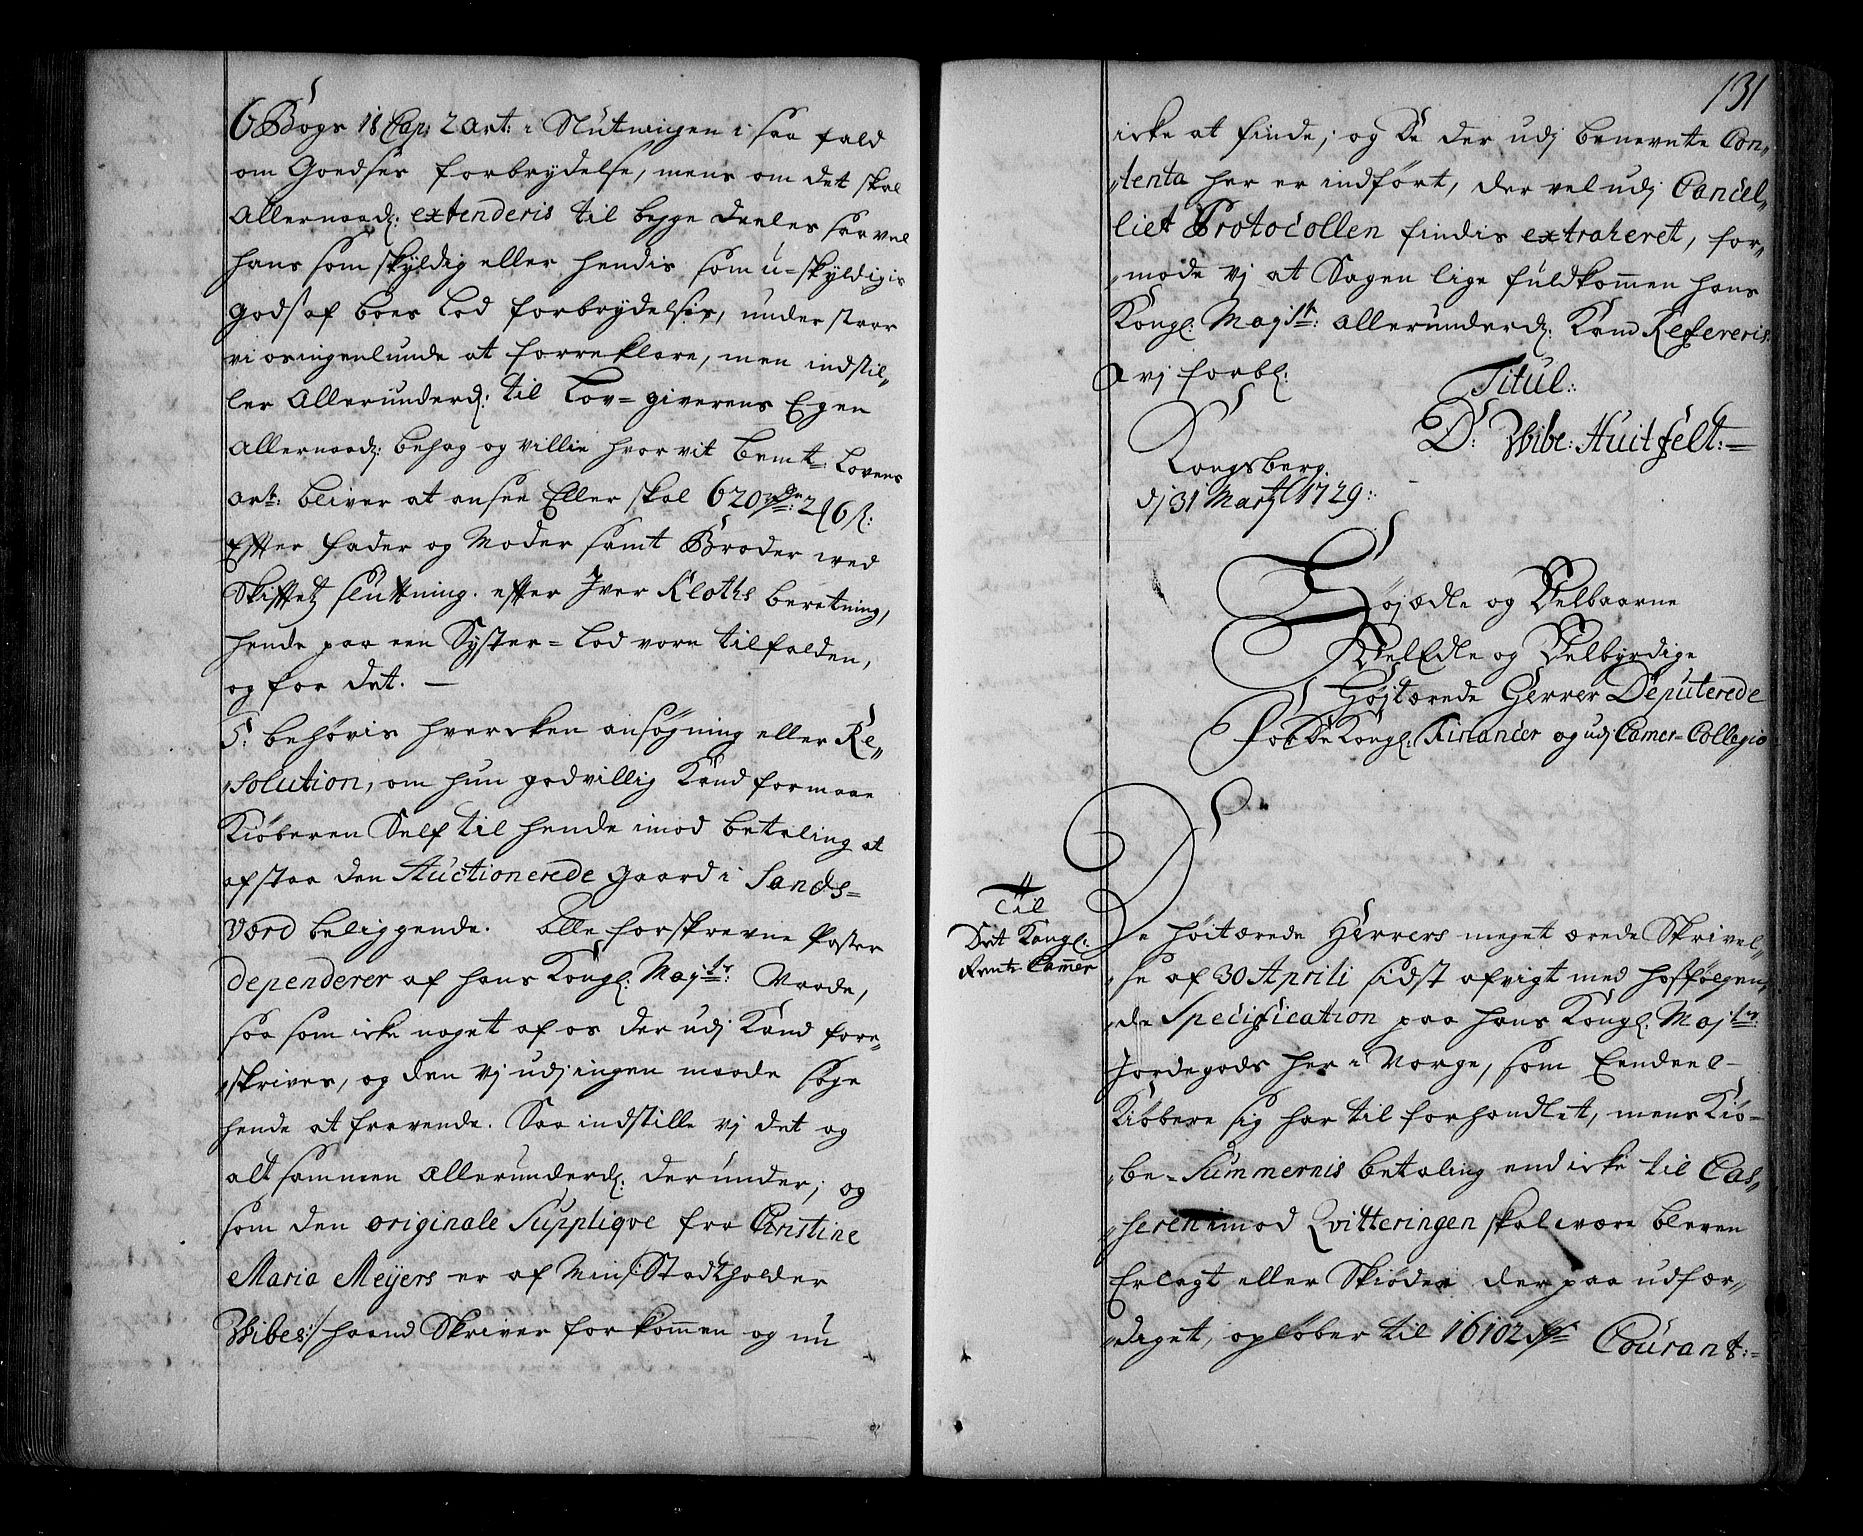 6 Bogs 18 Cap: 2 art: i Slutningen i saa fald
om Goedses forbrydelse, mens om det skal
Allernaad: extenderis til begge deeles saavel
hans som skyldig eller hendis som u=skyldigis
gods af boes Lod forbrydelses, understaar
vi os ingenlunde at forreklare, men indstil„
ler Allerunderd: til Lov=giverens Egen
Allernaad: behag og villie hvorvit bemt= Lovens
art: bliver at ansee Eller skal 620 2 6 ß:
Efter fader og Moder samt Broder ved
Skiftetz sluttning. efter Iver Kloths beretning,
hende paa een Syster=Lod vere tilfalden,
og for det. —
5: behøvis hvercken ansøgning eller Re„
„solution, om hun godvillig Kand formaae
Kiøberen Self til hende imod betaling at
afstaa den Auctionerede gaard i Sands=
værd beliggende. Alle forskrevne Poster
dependerer af hans Kongl: Majts: Naade,
saa som icke noget af os der udj Kand fore„
„skrives, og den vj udj ingen maade søge
hende at fravende. Saa indstille vj det og
alt sammen allerunderd: derunder; og
som den originale Supplique fra Christine
Maria Meyers er af Min /: Stadtholder
Wibes :/ haand Skriver forkommen og nu

131
icke at finde; og de der udj benevnte Con„
„tenta her er indført, der vel udj Cancel„
liet Protocollen findis extraheret, for„
„mode vj at Sagen lige fuldkommen hans
Kongl: Majst: allerunderd: Kand Refereris.
Dvj forbl:
Titul:
D: Wibe: Huitfelt:=
Kongsberg.
dj 31 Martj 1729:

Højædle og Velbaarne
VelEdle og Velbyrdige
Højtærede Herrer Deputerede
For De Kongl: Financer og udj Camer=Collegio

Til
Det Kongl:
Rente Camer

De høitærede Herrers meget ærede Skrivel„
„se af 30 Aprili sidst afvigt med hosfølgen„
„de Specification paa hans Kongl: Majts:
Jordegods her i Norge, som Eendeel
Kiøbere sig har til forhandlet, mens Kiø=
„be=Summernis betaling end icke til Cas„
„seren imod Qvitteringen skal være bleven
Erlagt eller Skiøder der paa udfær„
„diget, opløber til 16102 Courant:=